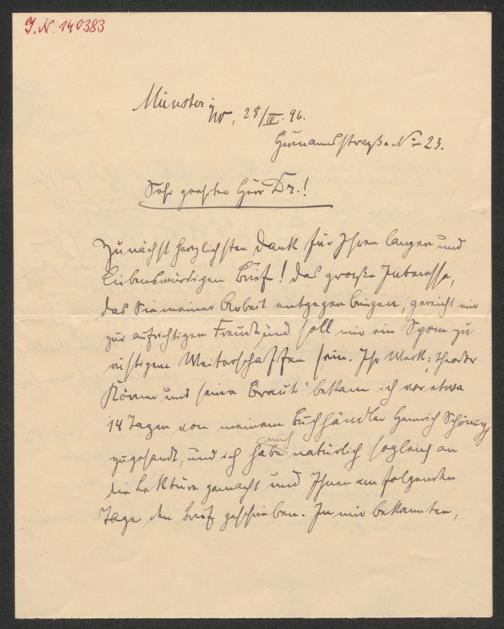 J.N. 140383
Münster i/W, 28/IV. 96.
Hermannstraße No 23.
Sehr geehrter Herr Dr.!
Zunächst herzlichsten Dank für Ihren langen und
liebenswürdigen Brief! Das große Interesse,
das Sie meiner Arbeit entgegen bringen, gereicht mir
zur aufrichtigen Freude und soll mir ein Sporn zu
rüstigem Weiterschaffen sein. Ihr Werk: „Theodor
Körner und seine Braut“ bekam ich vor etwa
14 Tagen von meinem Buchhändler Heinrich Schöningh
zugesandt, und ich habe mich natürlich sogleich an
die Lektüre gemacht und Ihnen am folgenden
Tage den Brief geschrieben. In mir bekannten,